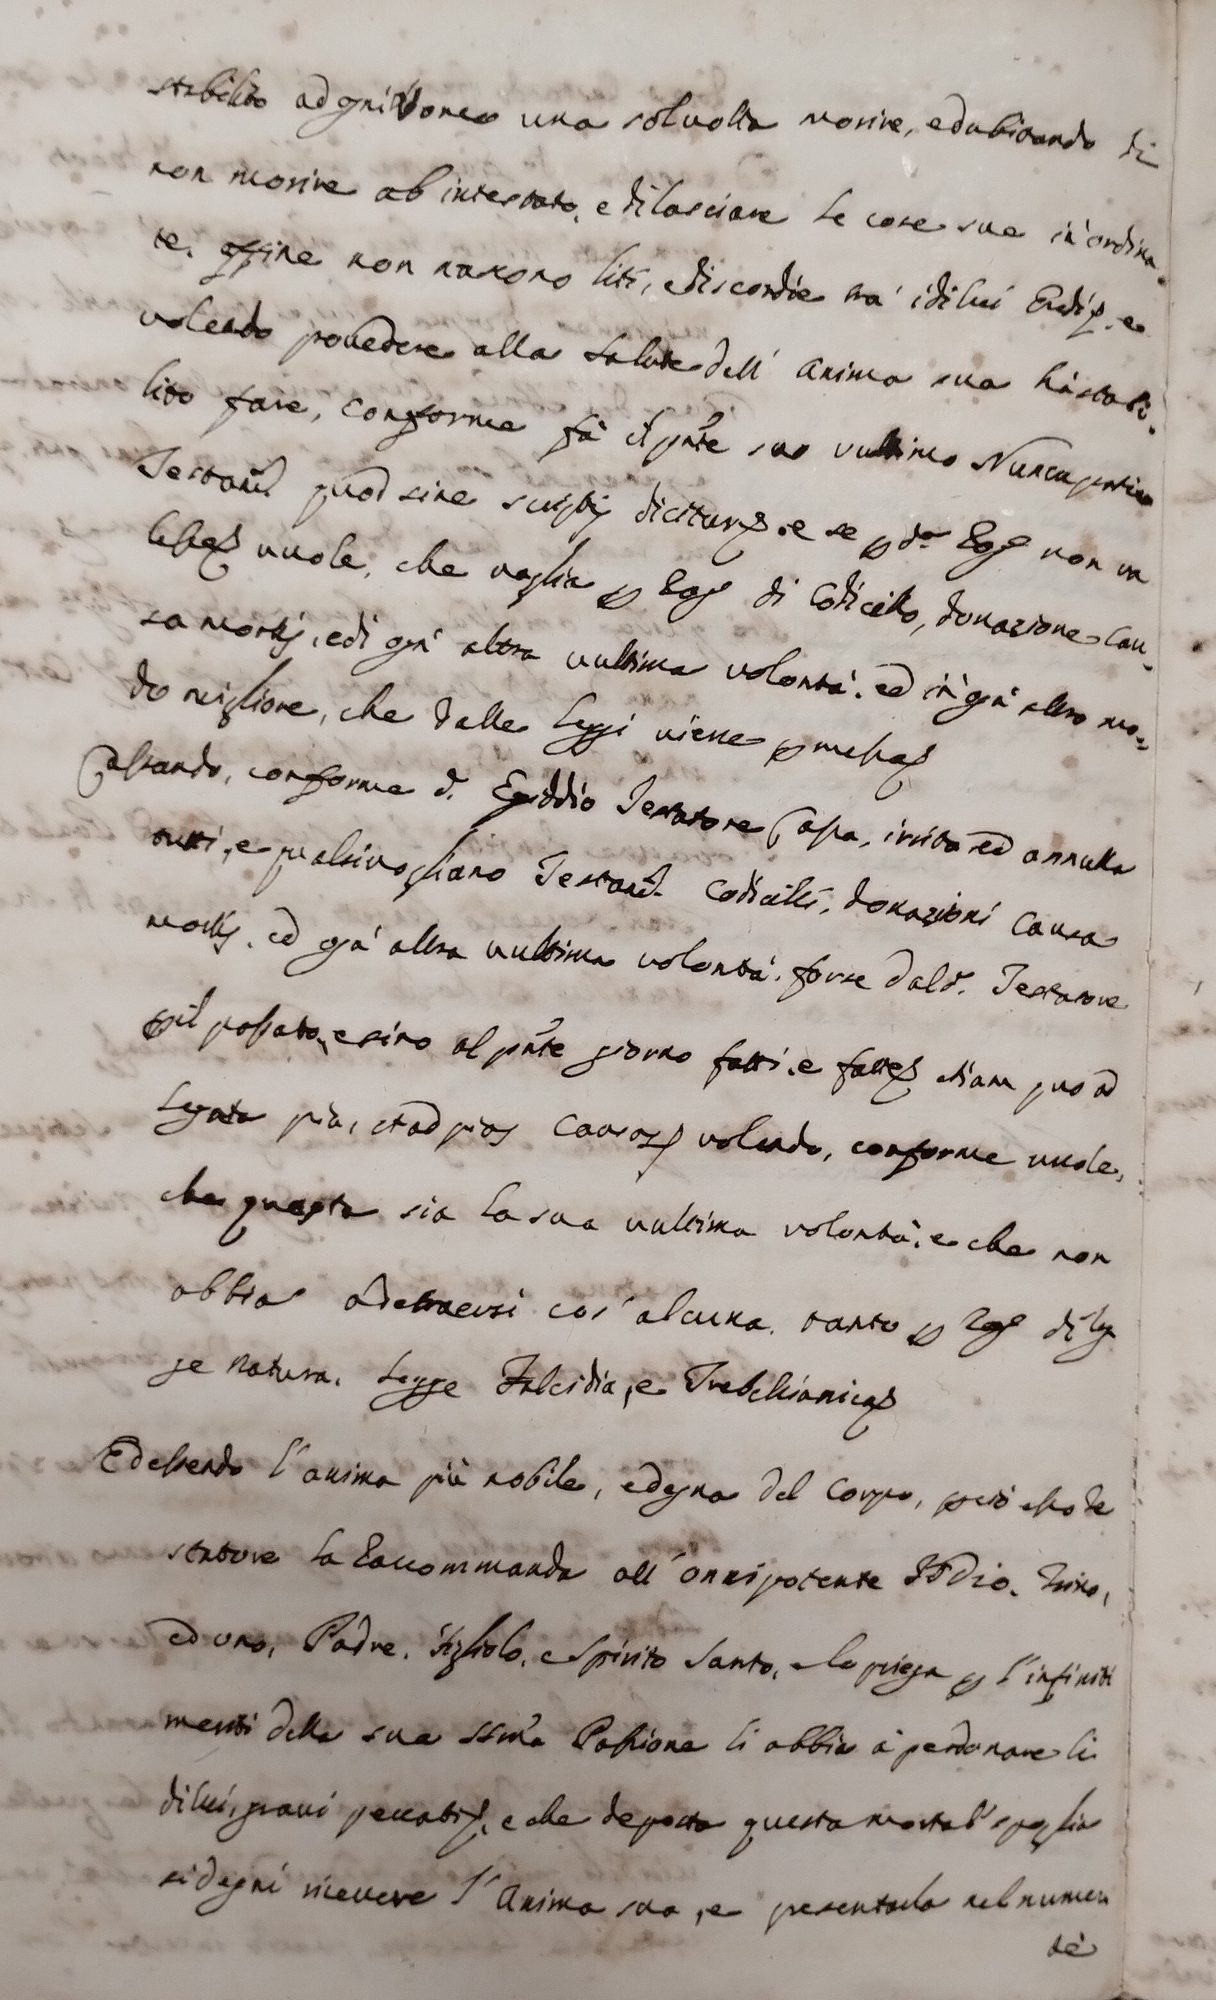 stabilito ad gni Uomo una sol uolta morire, e dubitando di
non morire ab intestato, e di lasciare le cose sue in ordina-
te. affine non nascono liti, e discordie trà i di lui Eredi, e
volendo provedere alla salute dell' anima sua hà stabi-
lito fare, conforme fà il pnte suo vultimo Nuncupativo
Testam.to quod sine scriptis dicitur, e se p d.a Rag.e non va
lesse vuole, che vaglia p Rag.e di Codicillo, donazione cau-
sa mortis, e di gni altra vultima volontà. ed in gni altro mo-
do migliore, che dalle Leggi viene pmesso
Cassando, conforme d. Egiddio Testatore Cassa, irrita ed annulla
tutti, e qualsivogliano Testam.ti Codicilli, donazioni causa
mortis. ed gni altra vultima volontà. forse dal d. Testatore
p il passato, e sino al pnte giorno fatti, e fatte etiam quo ad
Legata pia, et ad pias Causas volendo, conforme vuole,
che questa sia la sua vultima volontà, e che non
abbia a detraersi cos' alcuna. tanto p Rag.e di leg
ge Natura. Legge Falcidia, e Trebellianica
Ed essendo l'anima più nobile, e degna del Corpo, però esso Te
statore la Raccommanda all' onnipotente Iddio. Trino,
ed uno, Padre, figliolo, e Spirito Santo, e lo priega p l'infiniti
meriti della sua SSma Passione li abbia à perdonare li
di lui gravi peccati, e che deposta questa mortal' spoglia
si degni ricevere l'Anima sua, e presentarla nel numero
de